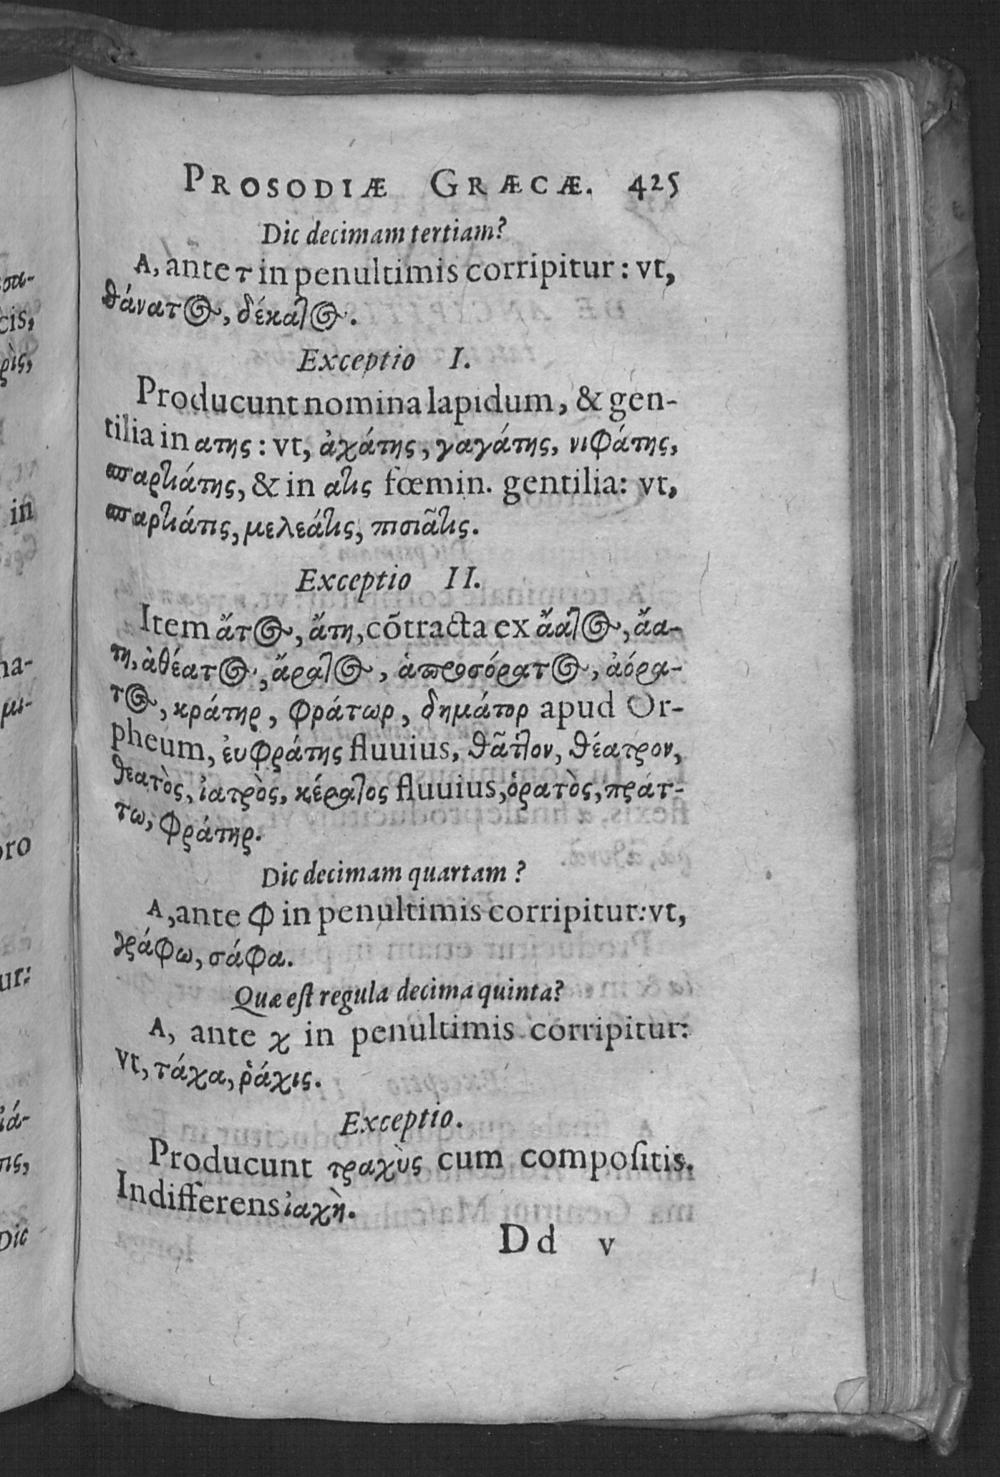 PROSODIÆ GRÆCÆ. 425
Dic decimam tertiam?
A, ante τ in penultimis corripitur: vt,
θάνατος, δέκατος.
Exceptio I.
Producunt nomina lapidum, & gen-
tilia in ατης: vt, ἀχάτης, γαγάτης, νιφάτης,
σπαρτιάτης, & in ατις fœmin. gentilia: vt,
σπαρτιάτις, μελεάτις, πισιᾶτις.
Exceptio II.
Item ἄτος, ἄτη, cõtracta ex ἄατος, ἄα-
τη, ἀθέατος, ἄρατος, ἀπροσόρατος, ἀόρα-
τος, κράτηρ, φράτωρ, δημάτηρ apud Or-
pheum, ἐυφράτης fluuius, θᾶττον, θέατρον,
θεατὸς, ἰατρὸς, κέρατος fluuius, ὁρατὸς, πράτ-
τω, φράτηρ.
Dic decimam quartam?
A, ante φ in penultimis corripitur: vt,
γράφω, σάφα.
Quæ est regula decima quinta?
A, ante χ in penultimis corripitur:
vt, τάχα, ῥάχις.
Exceptio.
Producunt τραχὺς cum compositis.
Indifferens ἰαχὴ.
Dd v
cis,
ρὶς,
in
na-
μι-
pro
ur:
ιά-
πις,
Dic